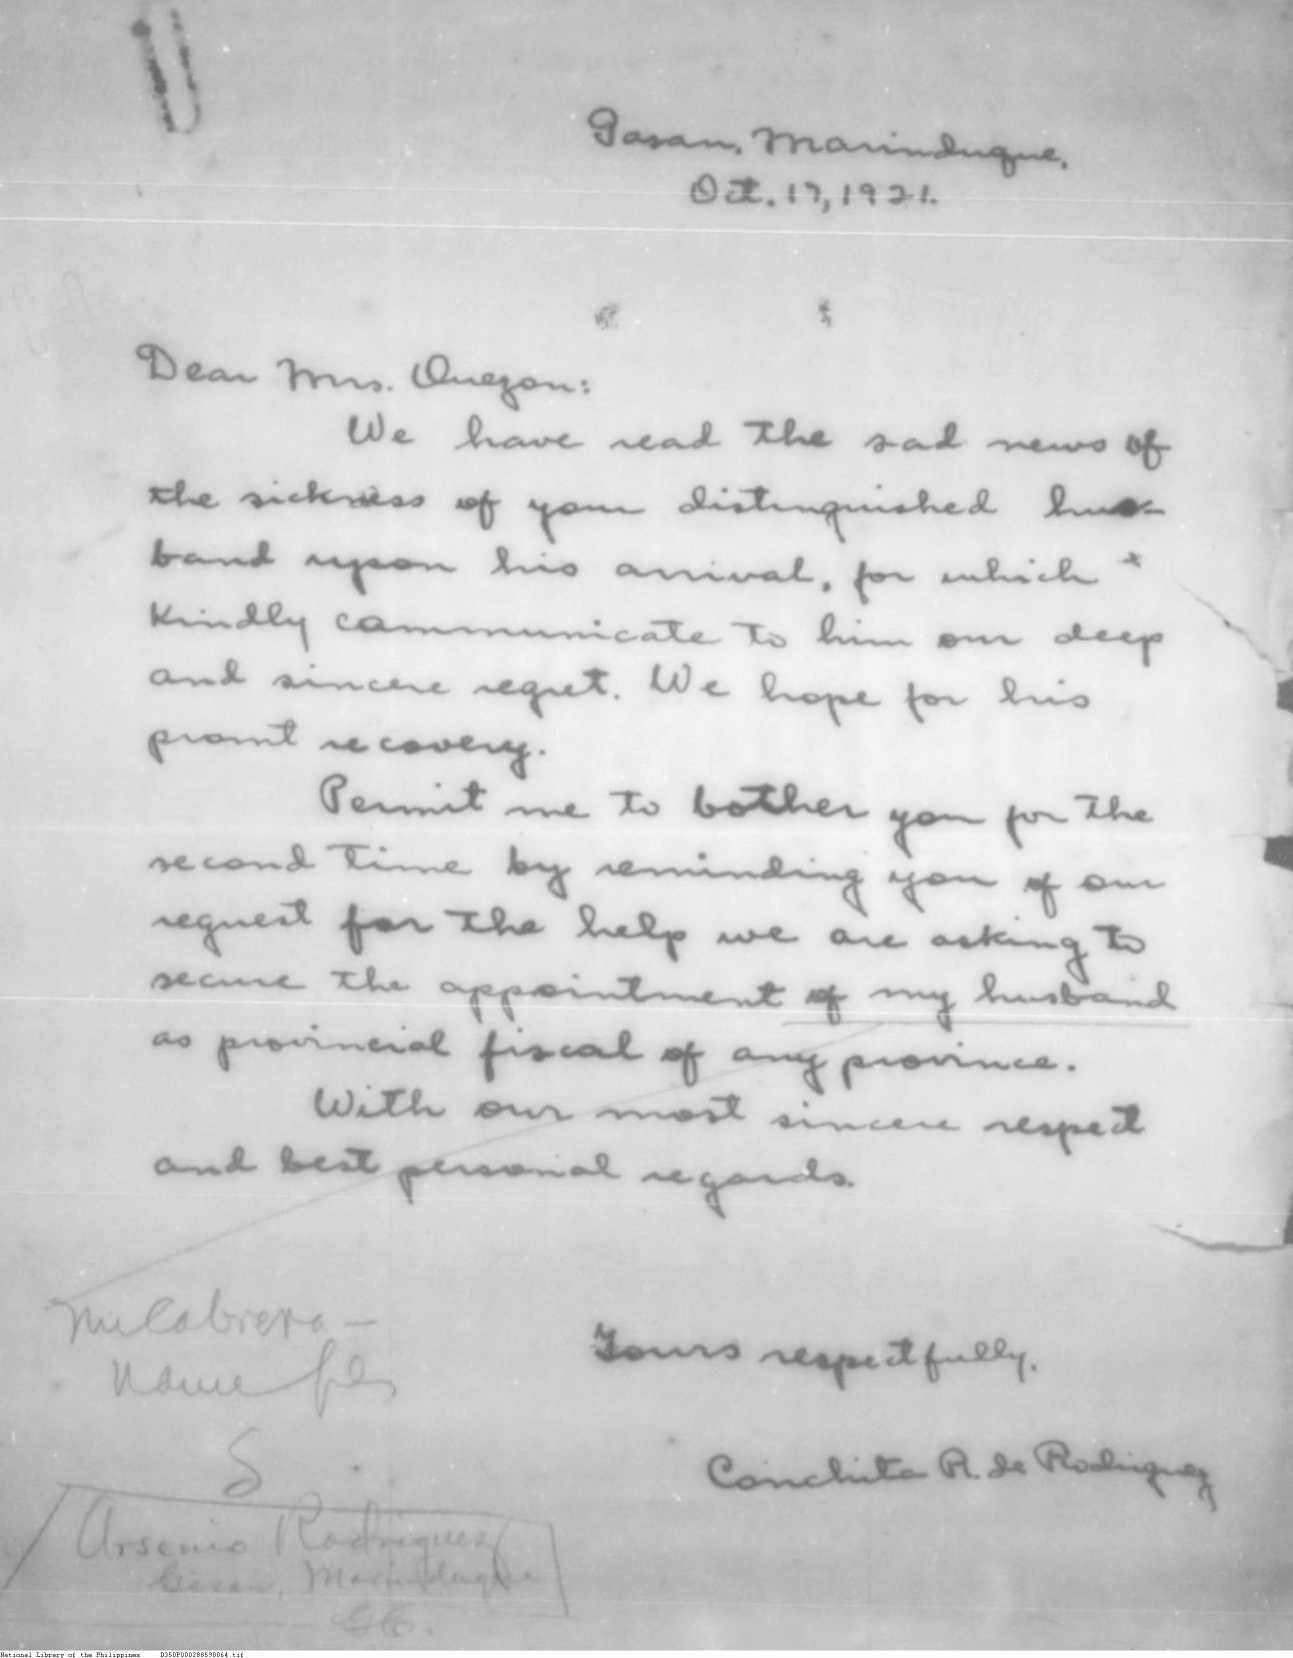 Gasan, Marinduque,
Oct. 17, 1921.
Dear Mrs. Quezon:
We have read the sad news of
the sickness of your distinguished hus-
band upon his arrival, for which
kindly communicate to him our deep
and sincere regret. We hope for his
promt recovery.
Permit me to bother you for the
second time by reminding you of our
request for the help we are asking to
secure the appointment of my husband
as provincial fiscal of any province.
With our most sincere respect
and best personal regards.
Mr Cabrera —
Name
Yours respectfully,
Conchita R. de Rodriguez
Arsenio Rodriguez
Gasan, Marinduque
National Library of the Philippines D350P000288590064.tif